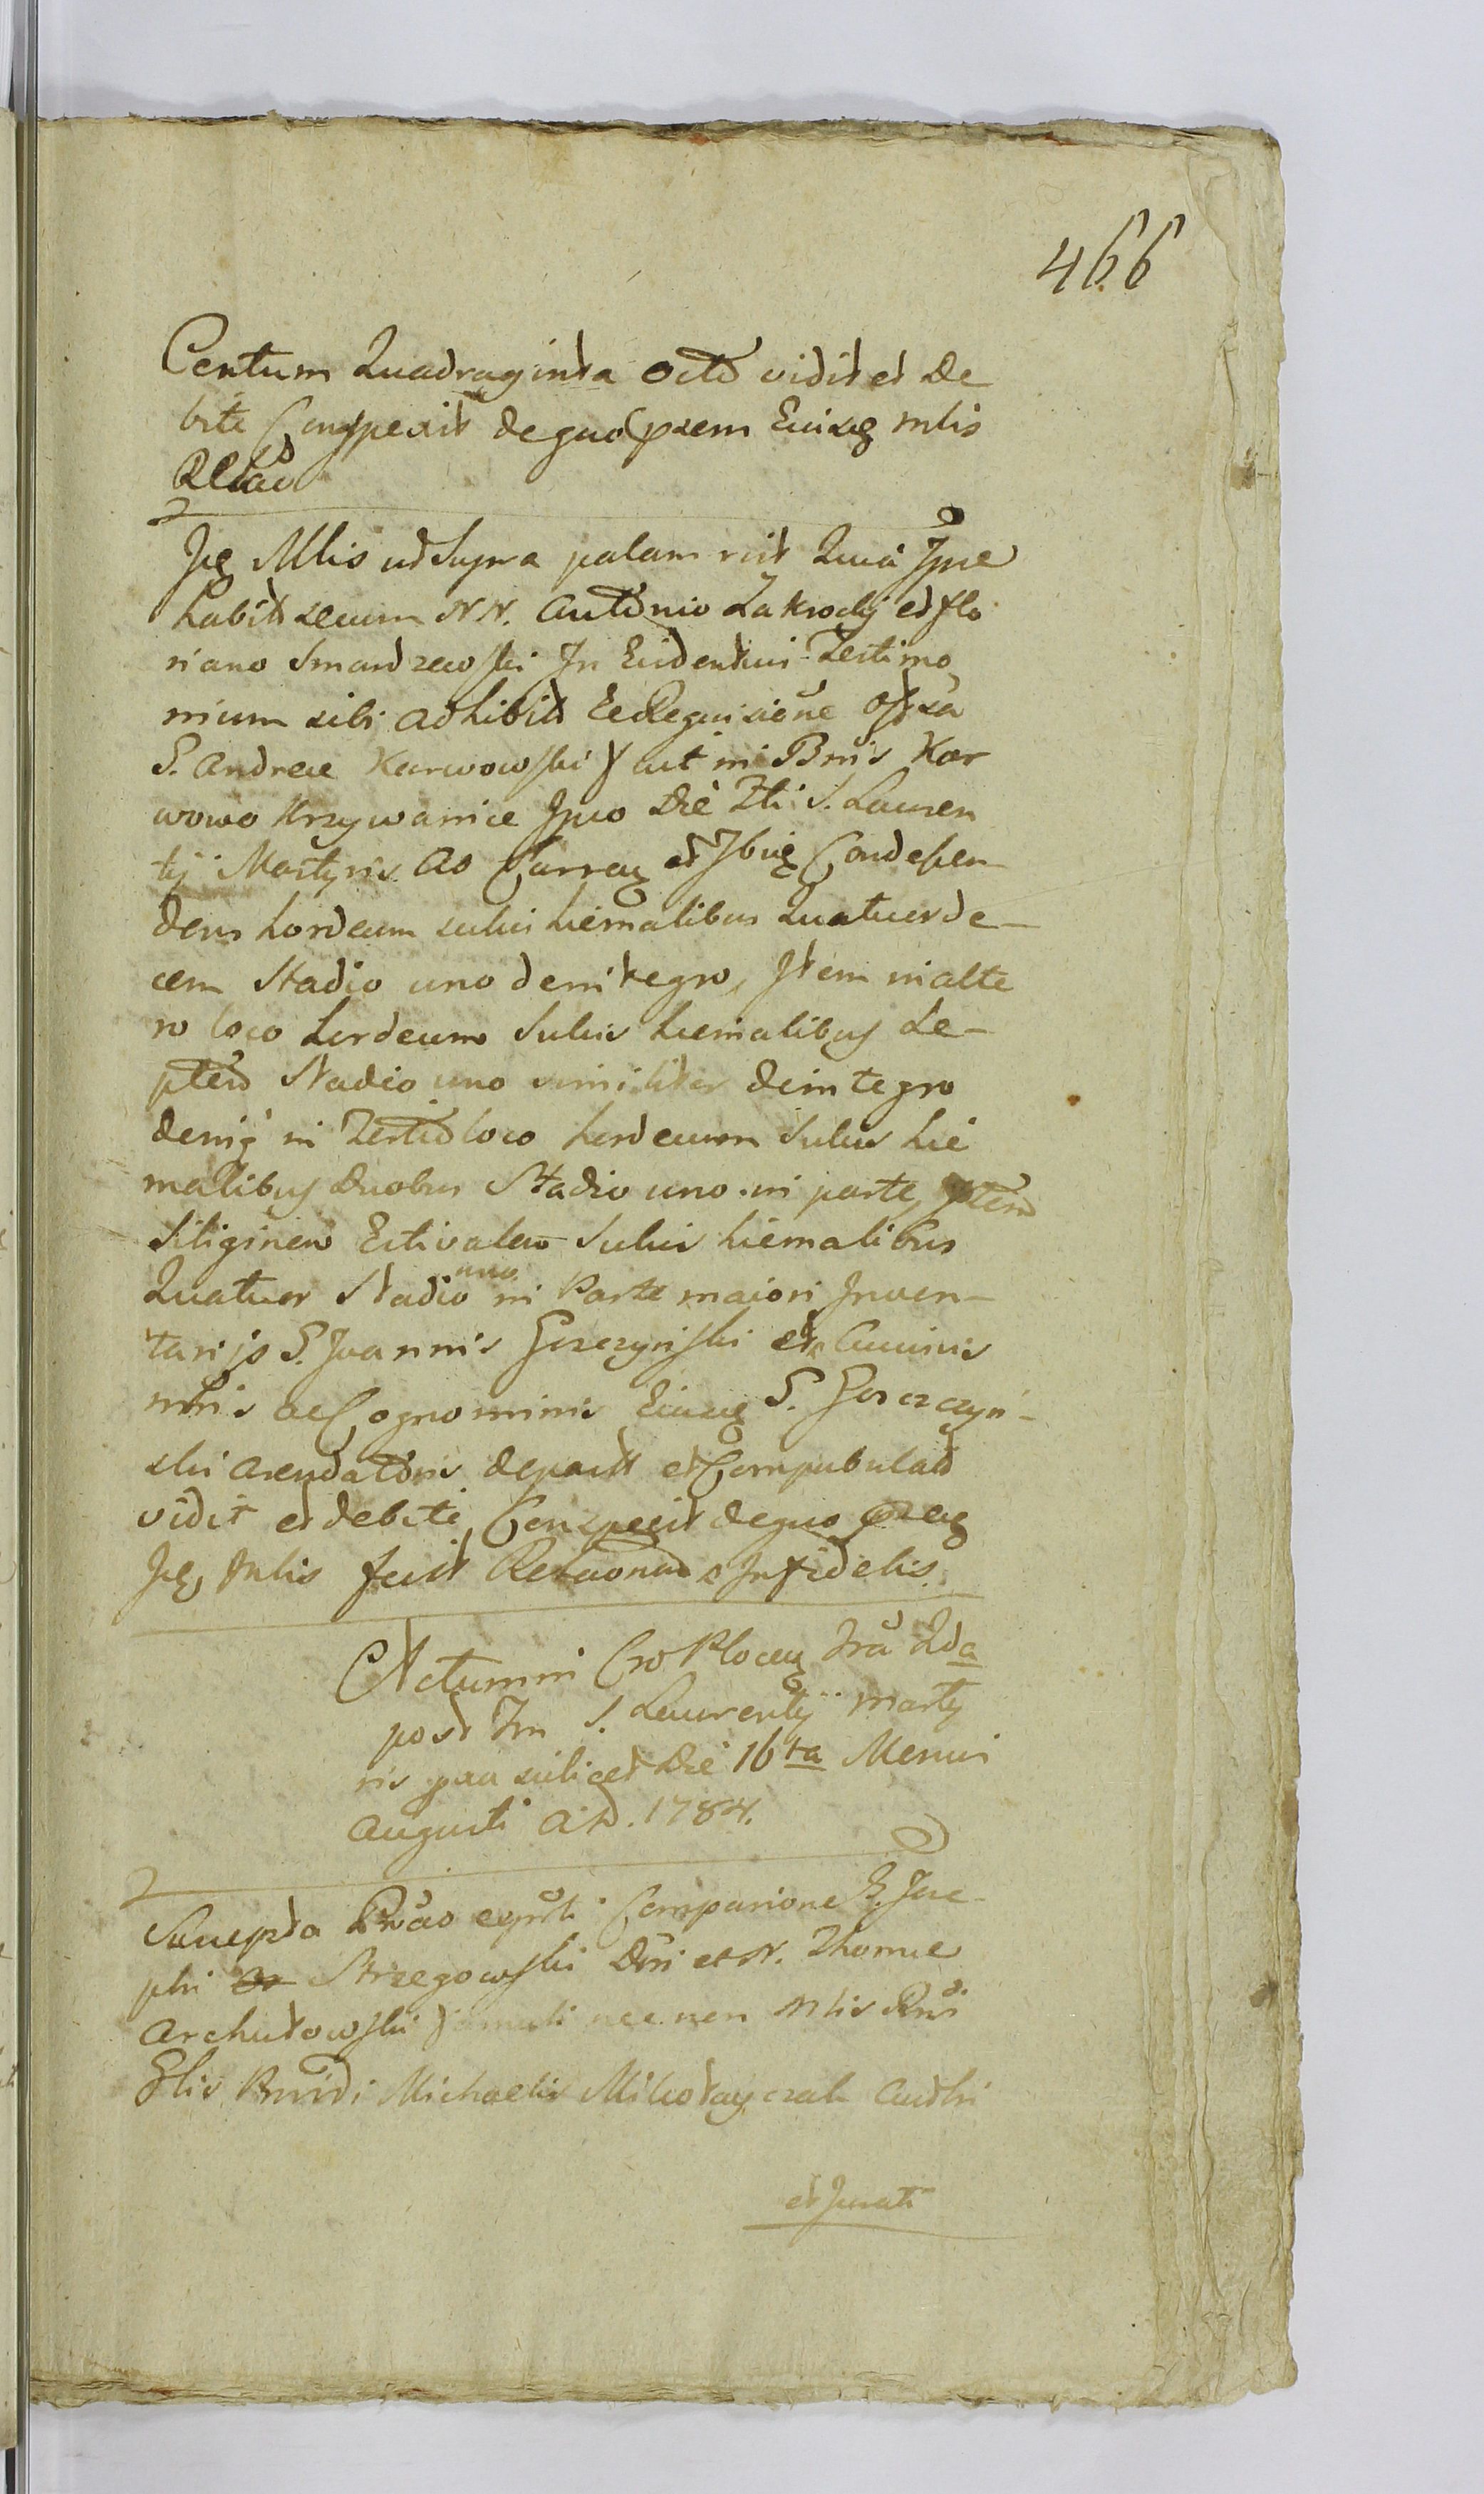 466
Centum Quadraginta Octo vidit et De
bite Conspexit de quo psem Eiusq mlis
Relaõ
Iq Mlis ut Supra palam rcit Quiã Ipse
habitt secum NN. Antonio Zakrocki et Flo
riano Smardzewski In Evidentius Testimo
nium sibi adhibitt Ee Requisiõne
G. Andreae Karwowski fuit in Bnis Kar
wowo Krzywanice Ipso Die Fti S. Lauren
tij Martyris Ao Curren et Ibiq
dens hordeum sulcis hiemalibus Quatuorde-
cem Stadio uno deintegro, Item in alte
ro loco hordeum Sulcis hiemalibus Se-
ptem Stadio uno similiter deintegro
deniq in Tertio loco hordeum Sulcis hie
malibus Duobus Stadio uno in parte, Item
Siliginem Estivalem Sulcis hiemalibus
Quatuor Stadio uno in Parte maiori Inven-
tarijs G. Joannis Gorczyński et Cuiuvis
mbris ac Cognominis Eiusq G. Gorczyń-
ski arendatoris depastt et Compabulatt
vidit et debite Conspexit de quo
Iq Mlis fecit Relaonem Infidelis.
Actum in Cro Plocen Fra 2da
post Fm S. Laurentij Marty
ris pxa scilicet Die 16ta Mensis
Augusti A.D. 1784.
Suscepta Pñao Comparione G. Jose
phi Strzegowski Dni et N. Thomae
Archutowski famuli nec non Mlis Rni
Glis Pnvidi Michaelis Mikołayczak Authi
et Jurati